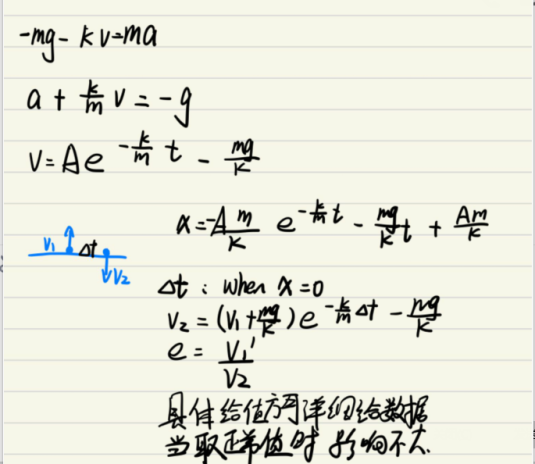 -mg - kv = ma
a + k/m v = -g
v = Ae^{-k/m t} - mg/k
x = -A m/k e^{-k/m t} - mg/k t + Am/k
v₁ Δt
v₂
Δt : when x=0
v₂ = (v₁ + mg/k) e^{-k/m Δt} - mg/k
e = v₁'/v₂
具体给值方可详细给数据
当取正常值时 影响不大.